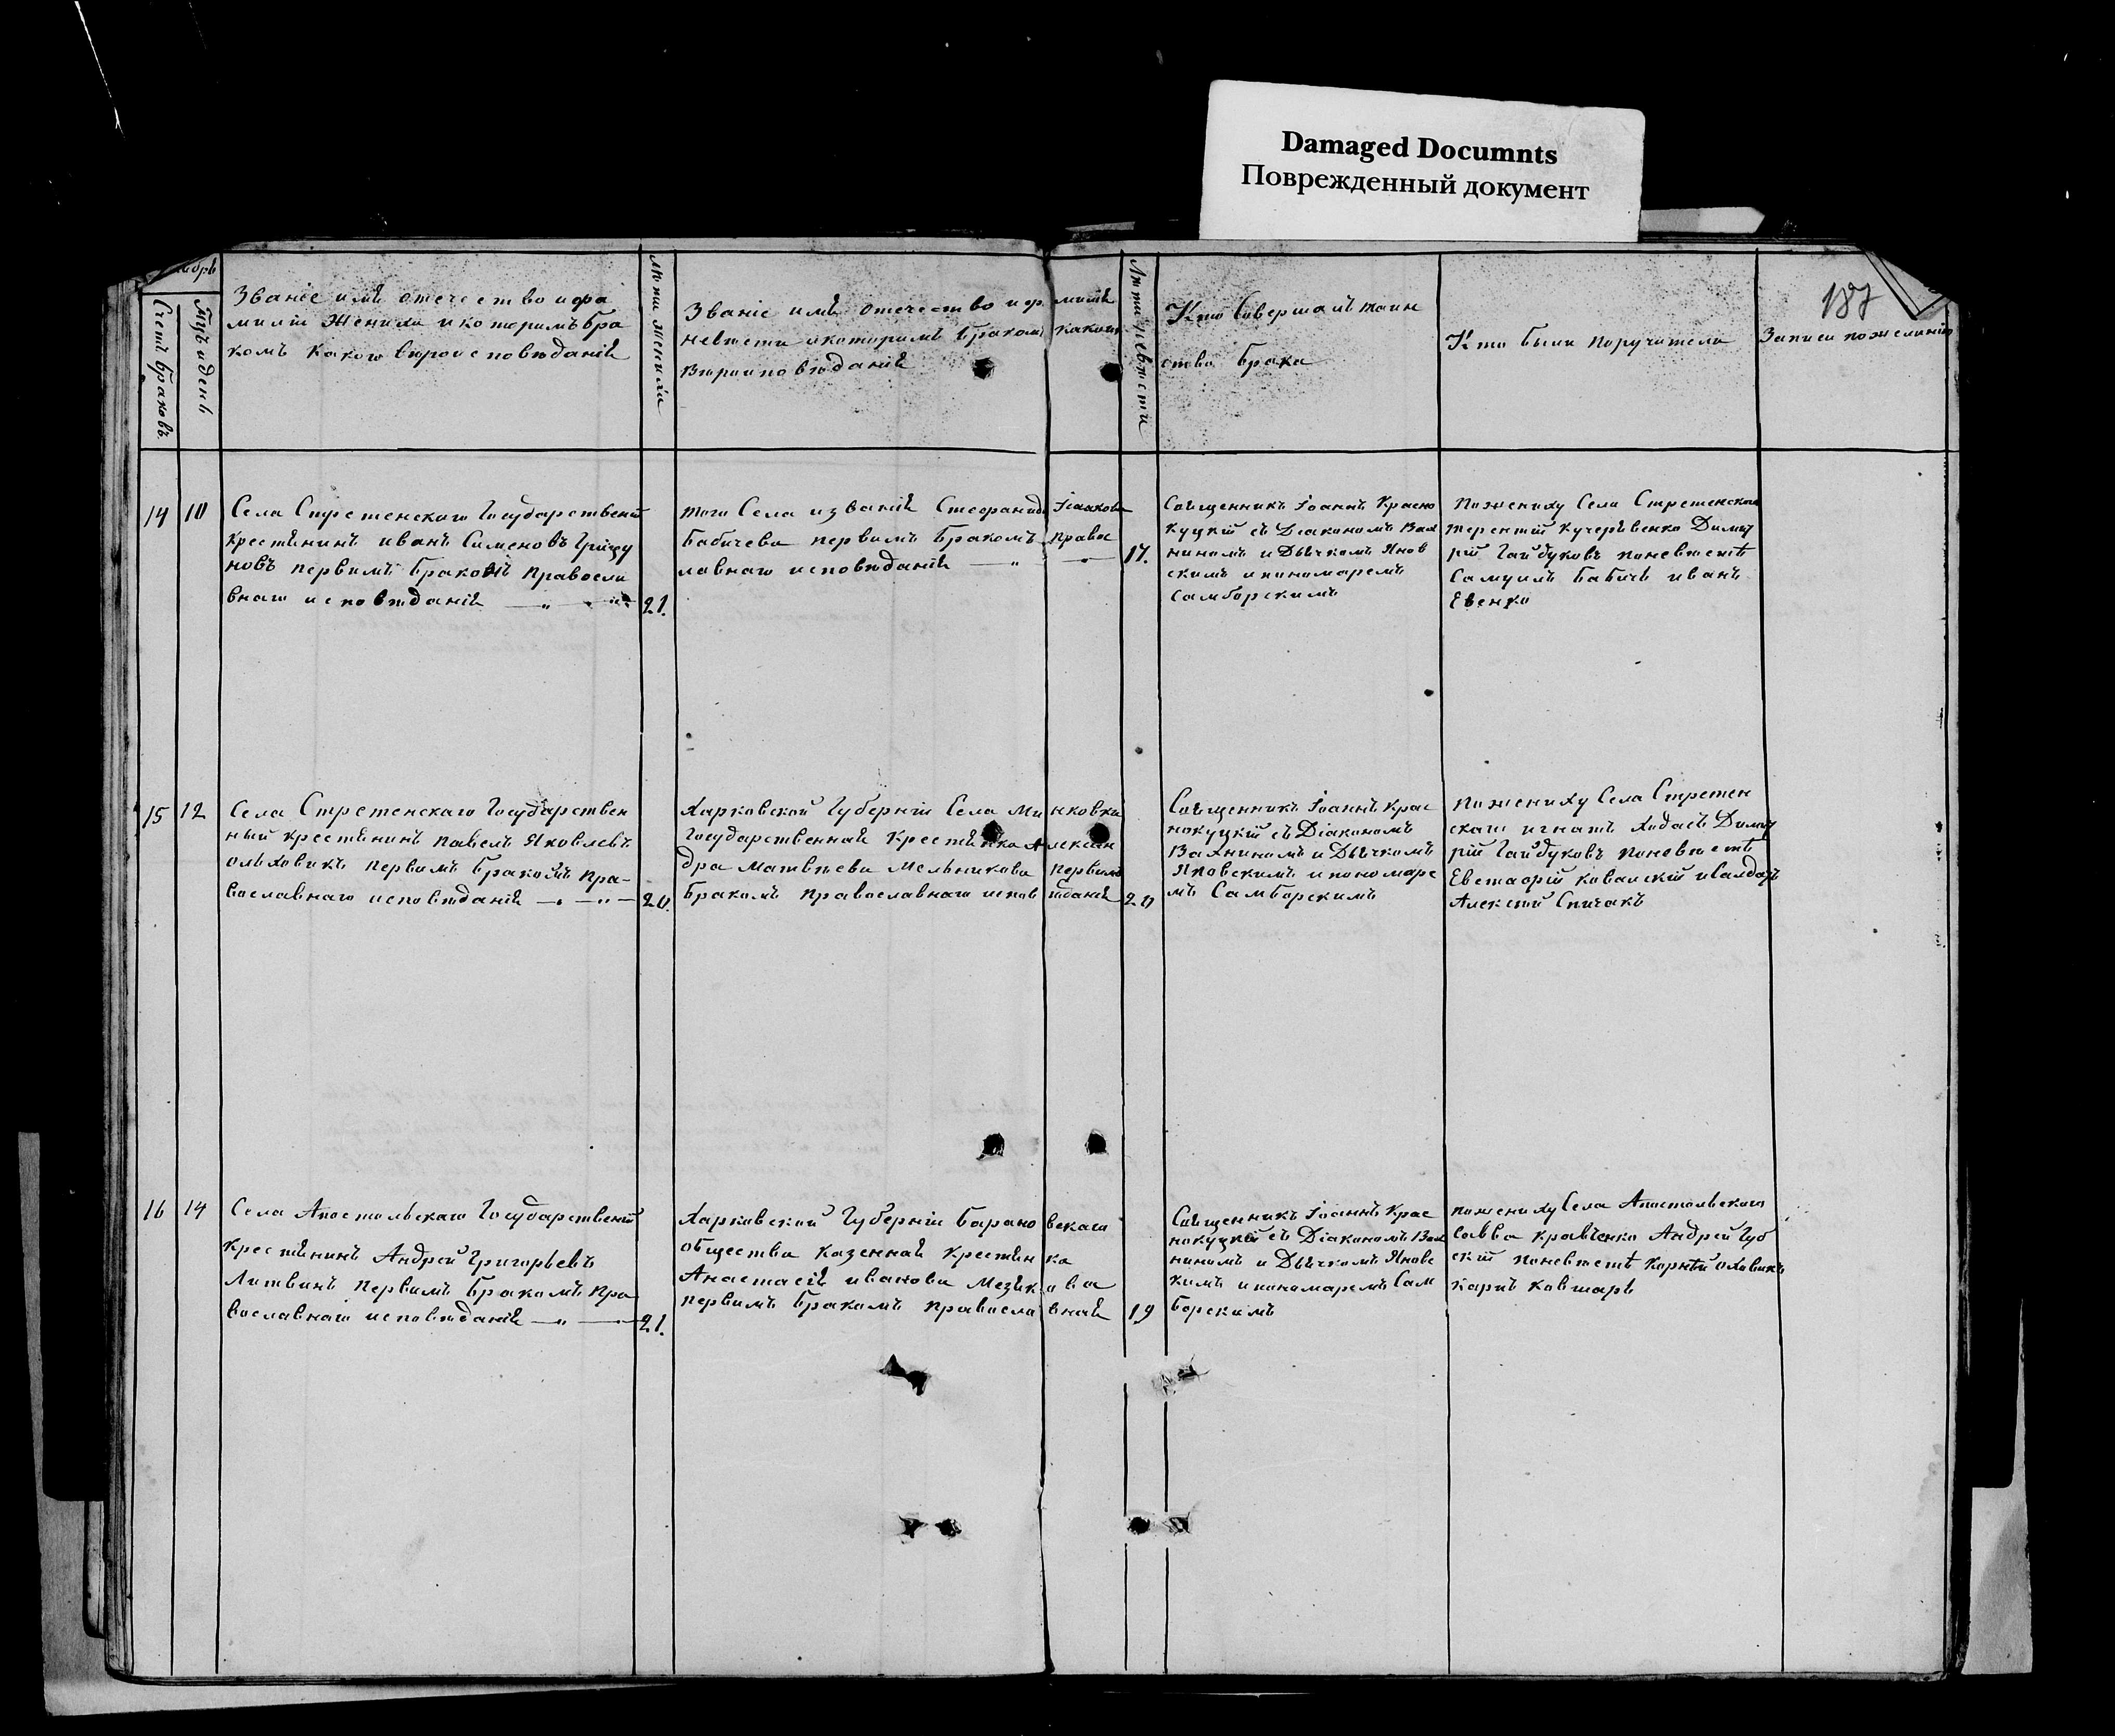 Damaged Documnts
Поврежденный документ
187
Счетъ браковъ.
Мцъ и день
Званіе имя отечество и фа
миліи Жениха и которимъ бра
комъ какого вѣроисповѣданія
Лѣта Жениха
Званіе имя отечество и фа миліи
невѣсти и которимъ бракомъ какого
вѣроисповѣданія
Лѣта невѣсти
Кто Совершалъ таин
ство брака
Кто были поручители
Записи по желанію
14
10
Села Стретенскаго Государствений
крестянинъ иванъ Сименовъ Грицу
новъ первимъ бракомъ правосла
внаго исповѣданія
21.
того Села изваній Стефанида Іяакова
Бабичева первимъ бракомъ правос
лавнаго исповѣданія
17.
Священникъ Іоаннъ Красно
куцкій съ Діакономъ Вах
нинимъ и Дьячкомъ Янов
скимъ и пономаремъ
Самборскимъ
пожениху Села Стретенскаго
терентій Кучерѣвенко Димит
рій Гайдуковъ поневѣстѣ
Самуилъ Бабичъ иванъ
Евенко
15
12
Села Стретенскаго Государствен
ный крестянинъ павелъ Яковлевъ
ольховикъ первимъ бракомъ пра-
вославнаго исповѣданія
20.
Харковской Губерніи Села Ми нковки
Государственная крестянка Алексан
дра Матвѣева Мельникова первимъ
бракомъ православнаго испов ѣданія
20
Священникъ Іоаннъ Крас
нокуцкій съ Діакономъ
Вахнинимъ и Дьячкомъ
Яновскимъ и пономаре
мъ Самборскимъ
пожениху Села Стретен
скаго игнатъ Ходасъ Димит
рій Гайдуковъ поневѣстѣ
Евстафій ковалскій исалдатъ
Алексѣй Спичакъ
16
14
Села Апостольскаго Государствений
крестянинъ Андрей Григорьевъ
Литвинъ первимъ бракомъ пра
вославнаго исповѣданія
21.
Харковской Губерніи Барано вскаго
общества казенная крестян ка
Анастасія иванова Мезѣк ова
первимъ бракомъ правосла вная
19
Священникъ Іоаннъ Крас
нокуцкій съ Діакономъ Вах
нинимъ и Дьячкомъ Яновс
кимъ и пономаремъ Сам
борскимъ
пожениху Села Апостольскаго
Савва кравченко Андрей Губ
скій поневѣстѣ Корнѣй олховикъ
карпъ Ковтаръ